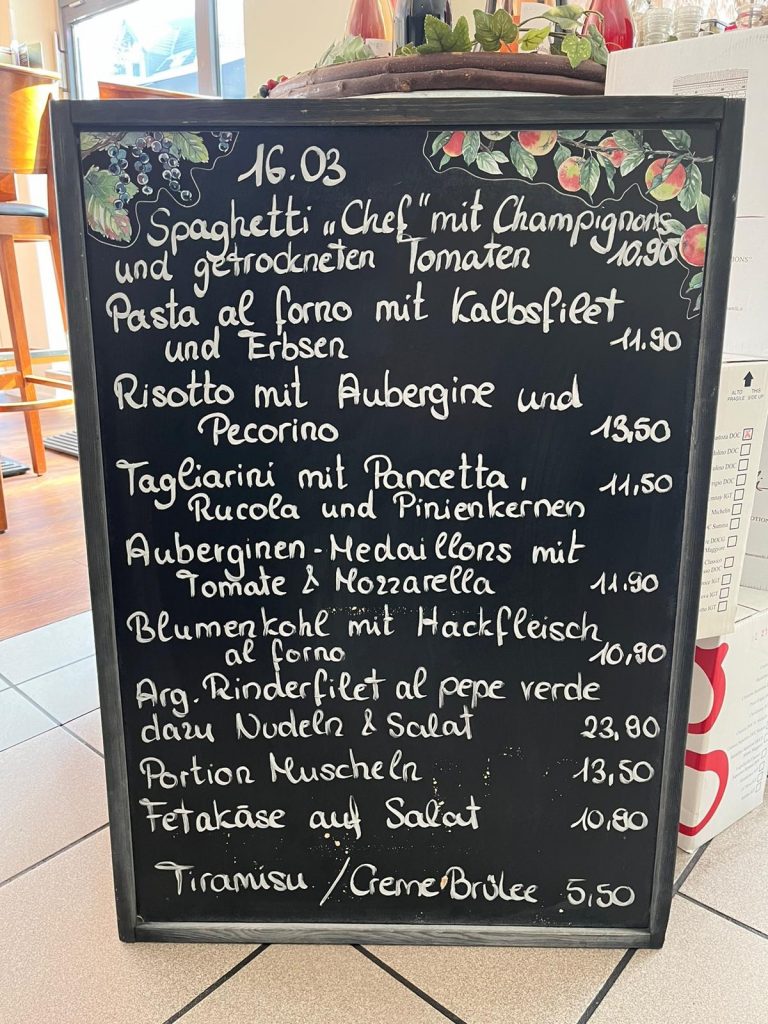 16.03
Spaghetti „Chef" mit Champignons
und getrockneten Tomaten 10.90
Pasta al forno mit Kalbsfilet
und Erbsen 11.90
Risotto mit Aubergine und
Pecorino 13,50
Tagliarini mit Pancetta, 11,50
Rucola und Pinienkernen
Auberginen-Medaillons mit
Tomate & Mozzarella 11.90
Blumenkohl mit Hackfleisch
al forno 10,90
Arg. Rinderfilet al pepe verde
dazu Nudeln & Salat 23,90
Portion Muscheln 13,50
Fetakäse auf Salat 10,80
Tiramisu / Creme Brûlee 5,50
ALTO THIS
FRAGILE SIDE UP